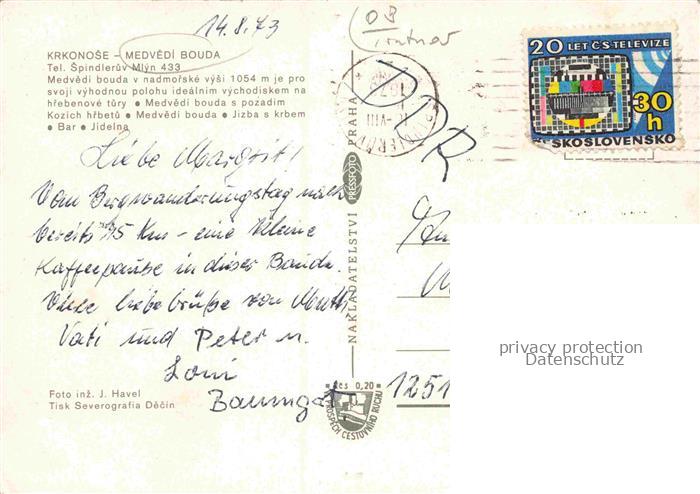 14.8.73
OB
Trutnov
KRKONOŠE – MEDVĚDÍ BOUDA
Tel. Špindlerův Mlýn 433
Medvědí bouda v nadmořské výši 1054 m je pro
svoji výhodnou polohu ideálním východiskem na
hřebenové túry • Medvědí bouda s pozadím
Kozích hřbetů • Medvědí bouda • Jizba s krbem
• Bar • Jídelna
Liebe Margrit!
Vom Bergwanderungstag nach
bereits 15 Km – eine kleine
Kaffeepause in dieser Baude.
Viele liebe Grüße von Mutti
Vati und Peter u.
Loni
Baumgt
Foto inž. J. Havel
Tisk Severografia Děčín
NAKLADATELSTVÍ
PRESSFOTO
PRAHA
DDR
20 LET ČS TELEVIZE
30 h
ČESKOSLOVENSKO
1251
Kčs 0,20
VE PROSPĚCH CESTOVNÍHO RUCHU
privacy protection
Datenschutz